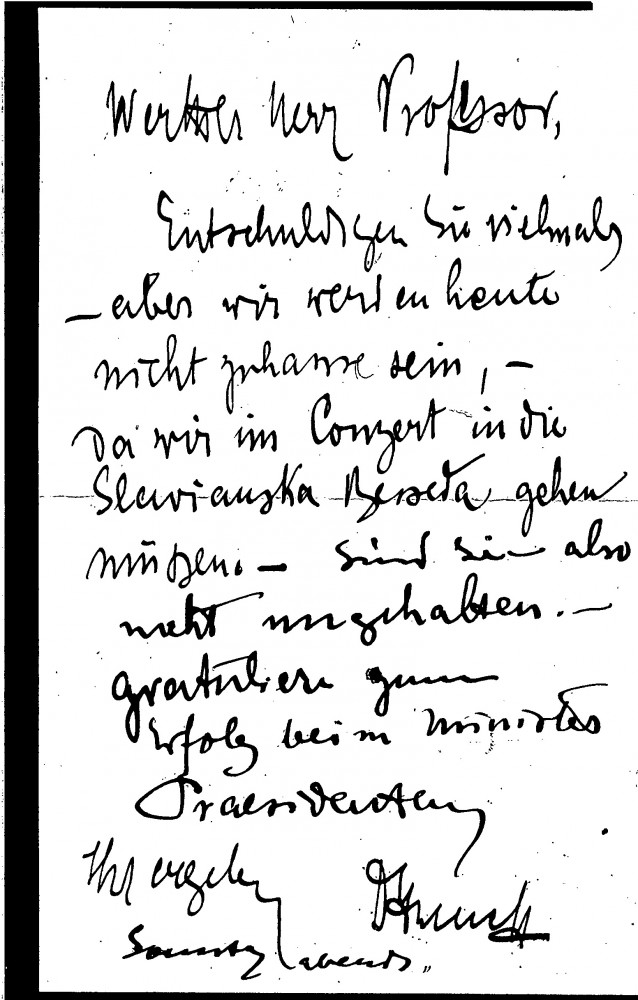 Werther Herr Professor,
Entschuldigen Sie vielmals
– aber wir werden heute
nicht zuhause sein, –
Da wir im Conzert in die
Slavianska Besseda gehen
müßen. – Sind Sie also
nicht ungehalten. –
gratuliere zum
Erfolg beim Minister
Praesidenten,
Ihr ergeb
Sonntag abends.